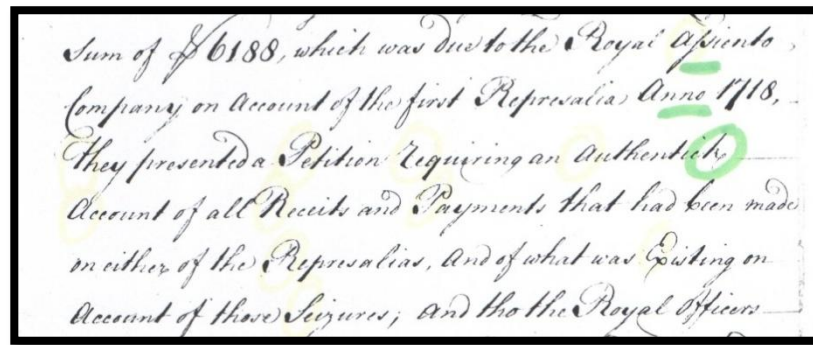 Sum of $6188, which was due to the Royal Assiento
Company on Account of the first Represalia Anno 1718,
they presented a Petition requiring an Authentick
Account of all Receits and Payments that had been made
on either of the Represalias, and of what was Existing on
Account of those Seizures; and tho the Royal Officers